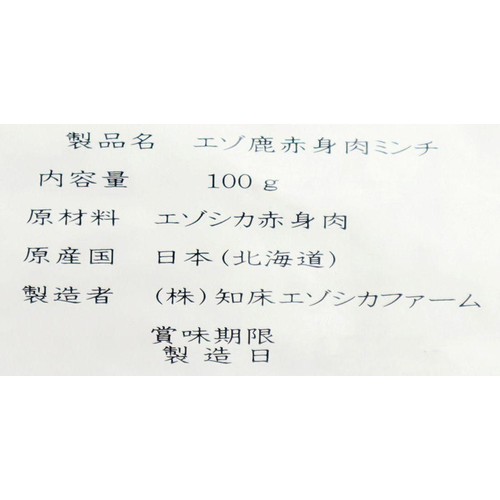 製品名 エゾ鹿赤身肉ミンチ
内容量 100g
原材料 エゾシカ赤身肉
原産国 日本(北海道)
製造者 (株)知床エゾシカファーム
賞味期限
製造日